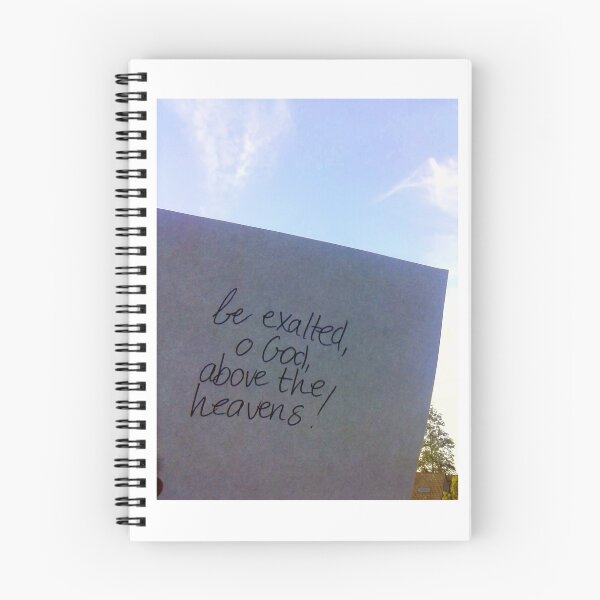 be exalted,
o God,
above the
heavens!